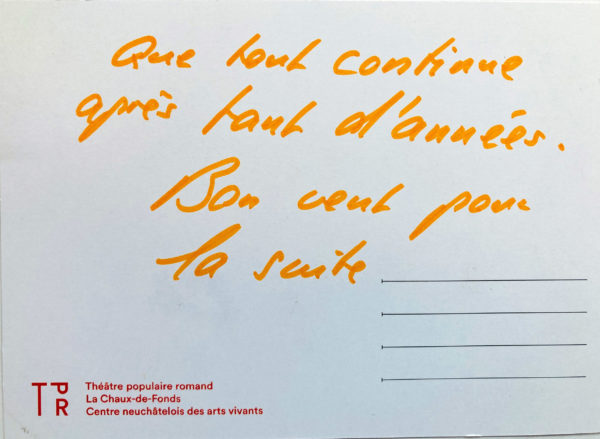 Que tout continue
après tant d'années.
Bon vent pour
la suite
TPR
Théâtre populaire romand
La Chaux-de-Fonds
Centre neuchâtelois des arts vivants